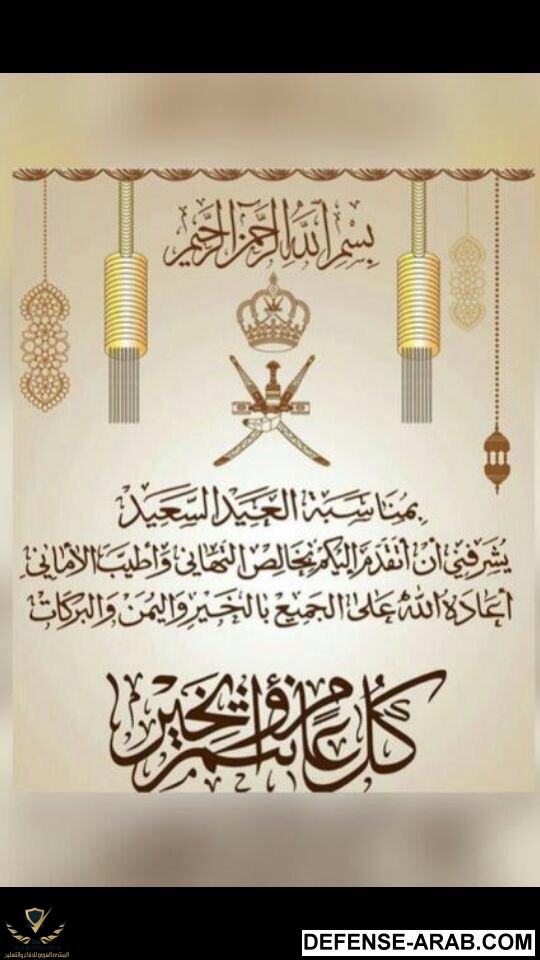 بِسْمِ اللَّهِ الرَّحْمَنِ الرَّحِيمِ
بمُنَاسَبَة العِيد السَّعِيد
يُشَرفني أن أتقدَم إليكم بخَالِص التهاني وَأطيبَ الأماني
أعَادَهُ اللهُ عَلى الجميع بالخَير وَاليُمن وَالبَركات
كُل عَام وَأنتم بخَير
المنتدى العربي للدفاع والتسليح
DEFENSE-ARAB.COM